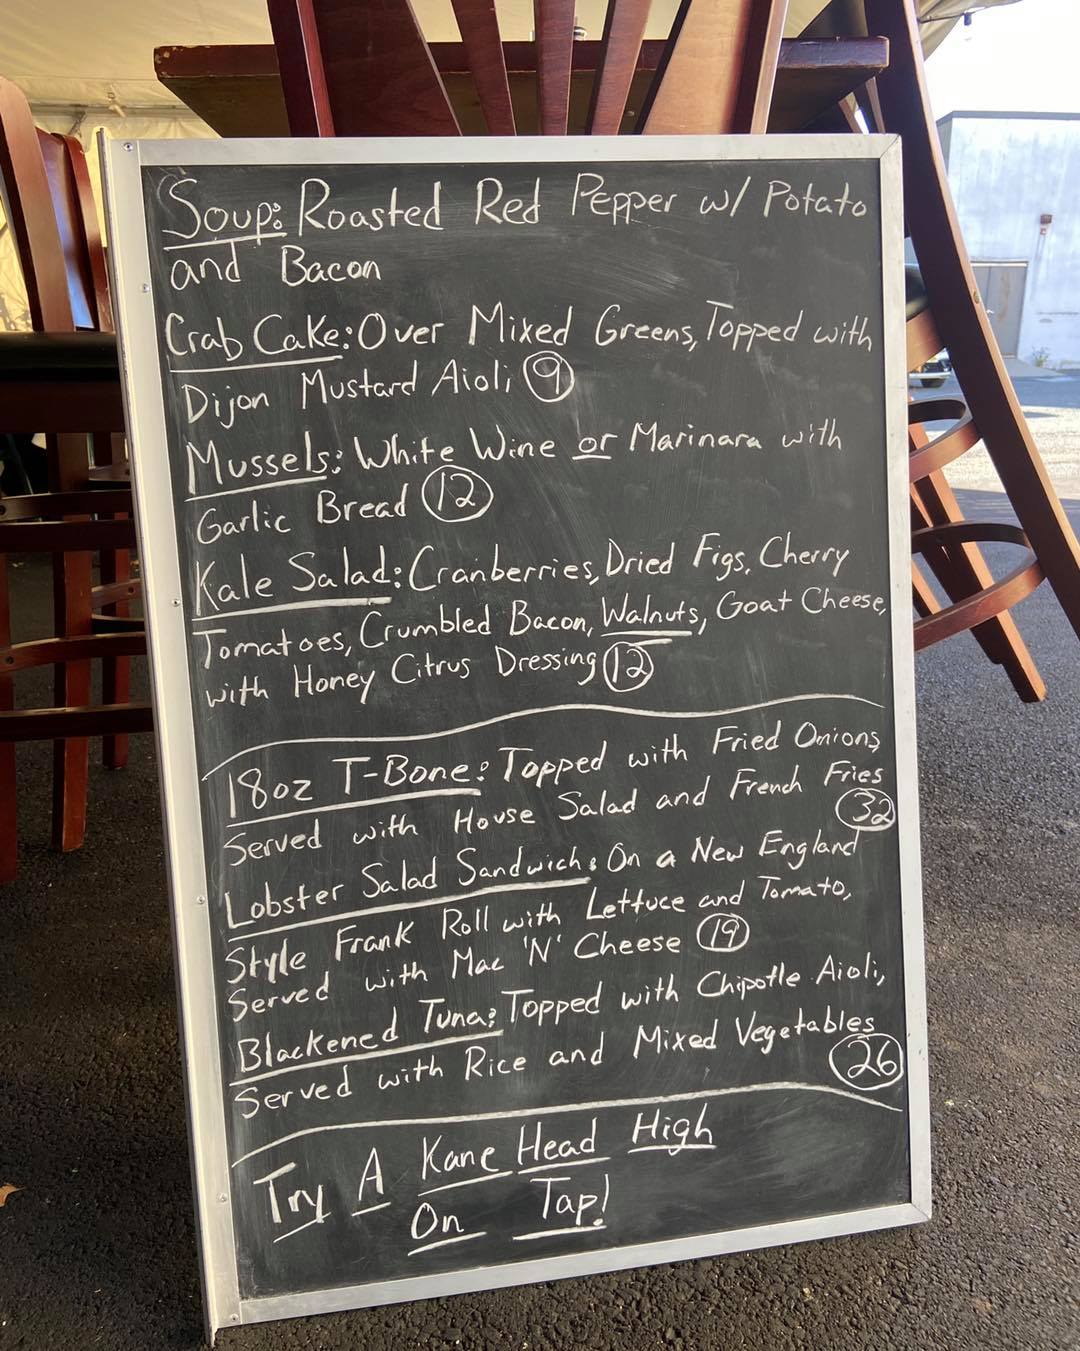 Soup: Roasted Red Pepper w/ Potato
and Bacon
Crab Cake: Over Mixed Greens, Topped with
Dijon Mustard Aioli 9
Mussels: White Wine or Marinara with
Garlic Bread 12
Kale Salad: Cranberries, Dried Figs, Cherry
Tomatoes, Crumbled Bacon, Walnuts, Goat Cheese,
with Honey Citrus Dressing 12
18oz T-Bone: Topped with Fried Onions,
Served with House Salad and French Fries
32
Lobster Salad Sandwich: On a New England
Style Frank Roll with Lettuce and Tomato,
Served with Mac 'N' Cheese 19
Blackened Tuna: Topped with Chipotle Aioli,
Served with Rice and Mixed Vegetables
26
Try A Kane Head High
On Tap!